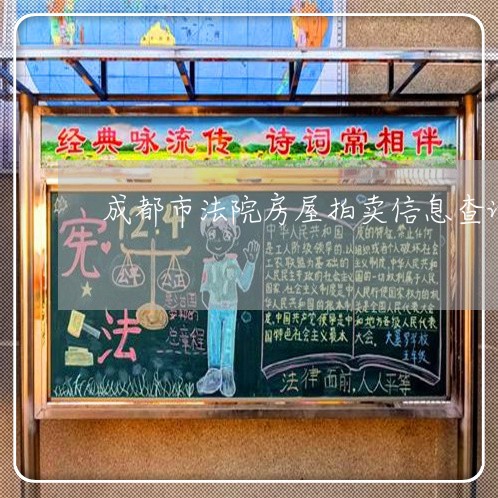 经典咏流传 诗词常相伴
成都市法院房屋拍卖信息查
宪法
12.4
公平 公正
总章程
中华人民共和国
是工人阶级领导的,以
工农联盟为基础的
人民民主专政的社会主义
国家,社会主义制度是中
华人民共和国的根本制
度,中国共产党领导是中
国特色社会主义最本
质的特征,禁止任何
组织或者个人破坏社会
主义制度,中华人民共和
国的一切权利属于人民,
人民行使国家权力的机
关是全国人民代表大会
和地方各级人民代表
大会。
五年级
法律面前,人人平等